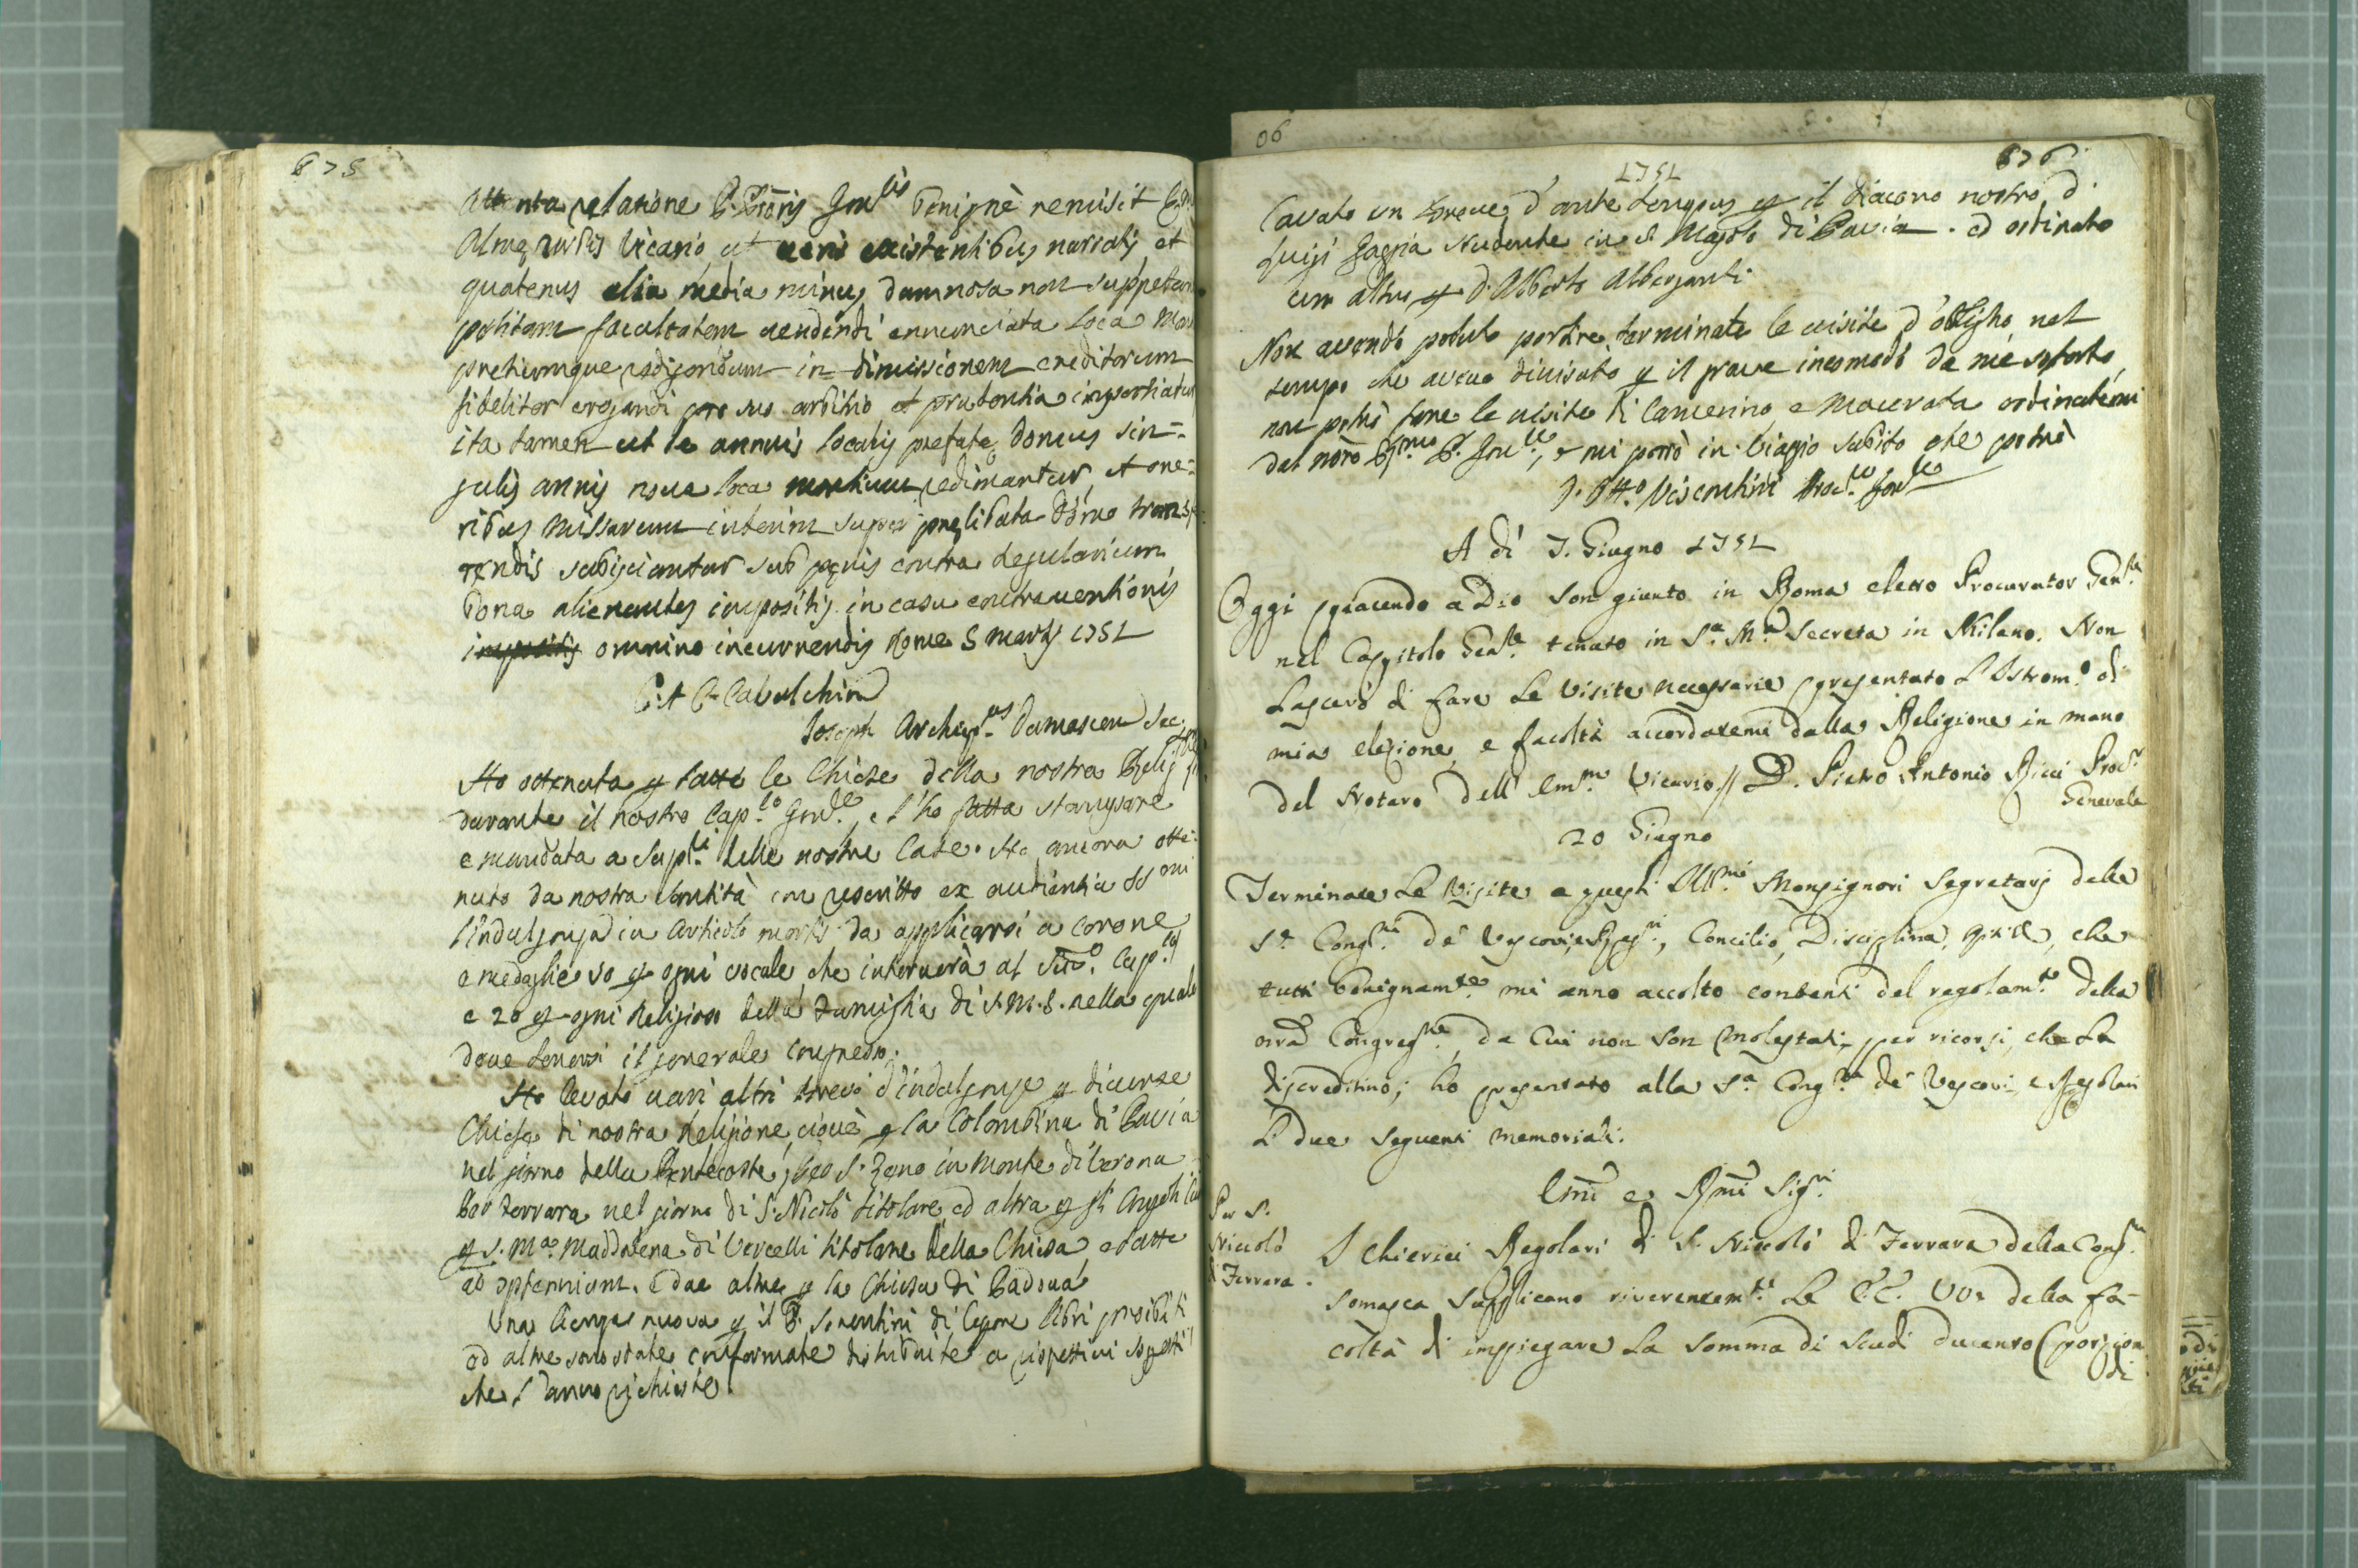 675
Attenta relatione P. Proris Gnlis benignè remisit
Almæ Urbis Vicario, ut veris existentibus narratis, et
quatenus alia media minus damnosa non suppetant
petitam facultatem vendendi enunciata loca
pretiumque redigendum in dimissionem creditorum
fideliter erogandi pro suo arbitrio et prudentia impertiatur
ita tamen ut de annuis locatis prefatæ domus sin=
gulis annis nova loca montium redimantur, et one=
ribus missarum interim super prælibata domo transfe
rendis subijciantur sub pænis contra regularium
bona alienantes impositis in casu contraventionis
impositis omnino incurrendis Rome 5 martij 1751
C. A. C. Cavalchini
Joseph Archiep.us Damascen Sec.
Ho ottenuta p tutte le Chiese della nostra Relig
durante il nostro Cap.lo Gnle, e l'ho fatta stampare
e mandata a Sup.ri delle nostre Case. Ho ancora otte=
nuto da nostra Santità con rescritto ex audientia SS.mi
l'indulgenza in articolo mortis da applicarsi a corone
e medaglie 50 p ogni vocale che interverà al Cap.lo
e 20 p ogni Religioso della Famiglia di S.M.S. nella quale
deve tenersi il generale congresso.
Ho levato vari altri brevi d'indulgenze p diverse
Chiese di nostra Religione, cioè p la Colombina di Pavia
nel giorno della Pentecoste, S. Zeno in Monte di Verona
Ferrara nel giorno di S. Nicolò titolare ed altra p gli Angeli
p S. Ma. Maddalena di Vercelli titolare della Chiesa e tutte
ad septennium. E due altre p la Chiesa di Padova
Una licenza nuova p il P. Sorentini di legere libri proibiti
ed altre sono state confermate distribuite a rispettivi sogetti
che l'hanno richieste
06
1751
676
Cavato un breve d'ante tempus p il Diacono nostro d.
Luigi Gaggia studente in S. Majolo di Pavia. ed ordinato
un altro p d. Alberto Alberganti
Non avendo potuto partire terminate le visite d'obligho nel
tempo che avevo divisato p il grave incomodo da me soferto
non potrò fare le visite di Camerino e Macerata ordinatemi
dal nostro P. Gnle, e mi porrò in viaggio subito che potrò
Visconti Proc.re Gnle
A dì 7. Giugno 1751
Oggi piacendo a Dio son giunto in Roma eletto Procurator Gen.le
nel Capitolo Gen.le tenuto in S.a M.a Secreta in Milano. Non
lascerò di fare le visite necessarie presentato l'Istrom.o di
mia elezione, e facoltà accordatemi dalla Religione in mano
del Notaro dell'Em.mo Vicario // D. Pietro Antonio Ricci Proc.r
Generale
20 Giugno
Terminate le visite a questi Ill.mi Monsignori Segretarj delle
S.e Cong.ni de' Vescovi, e Reg.ri, Concilio, Disciplina, che
tutti benignam.te mi anno accolto contenti del regolam.to della
nra Congreg.ne, da cui non son molestati per ricorsi, che la
discreditino; ho presentato alla S.a Cong.ne de' Vescovi, e Regolari
li due seguenti memoriali.
Emi e Rmi Sig.ri
Per S.
Niccolò
di Ferrara.
I Chierici Regolari di S. Niccolò di Ferrara della Cong.ne
Somasca supplicano riverentem.te Le EE. VV. della fa-
coltà di impiegare la somma di scudi ducento (porzion
di